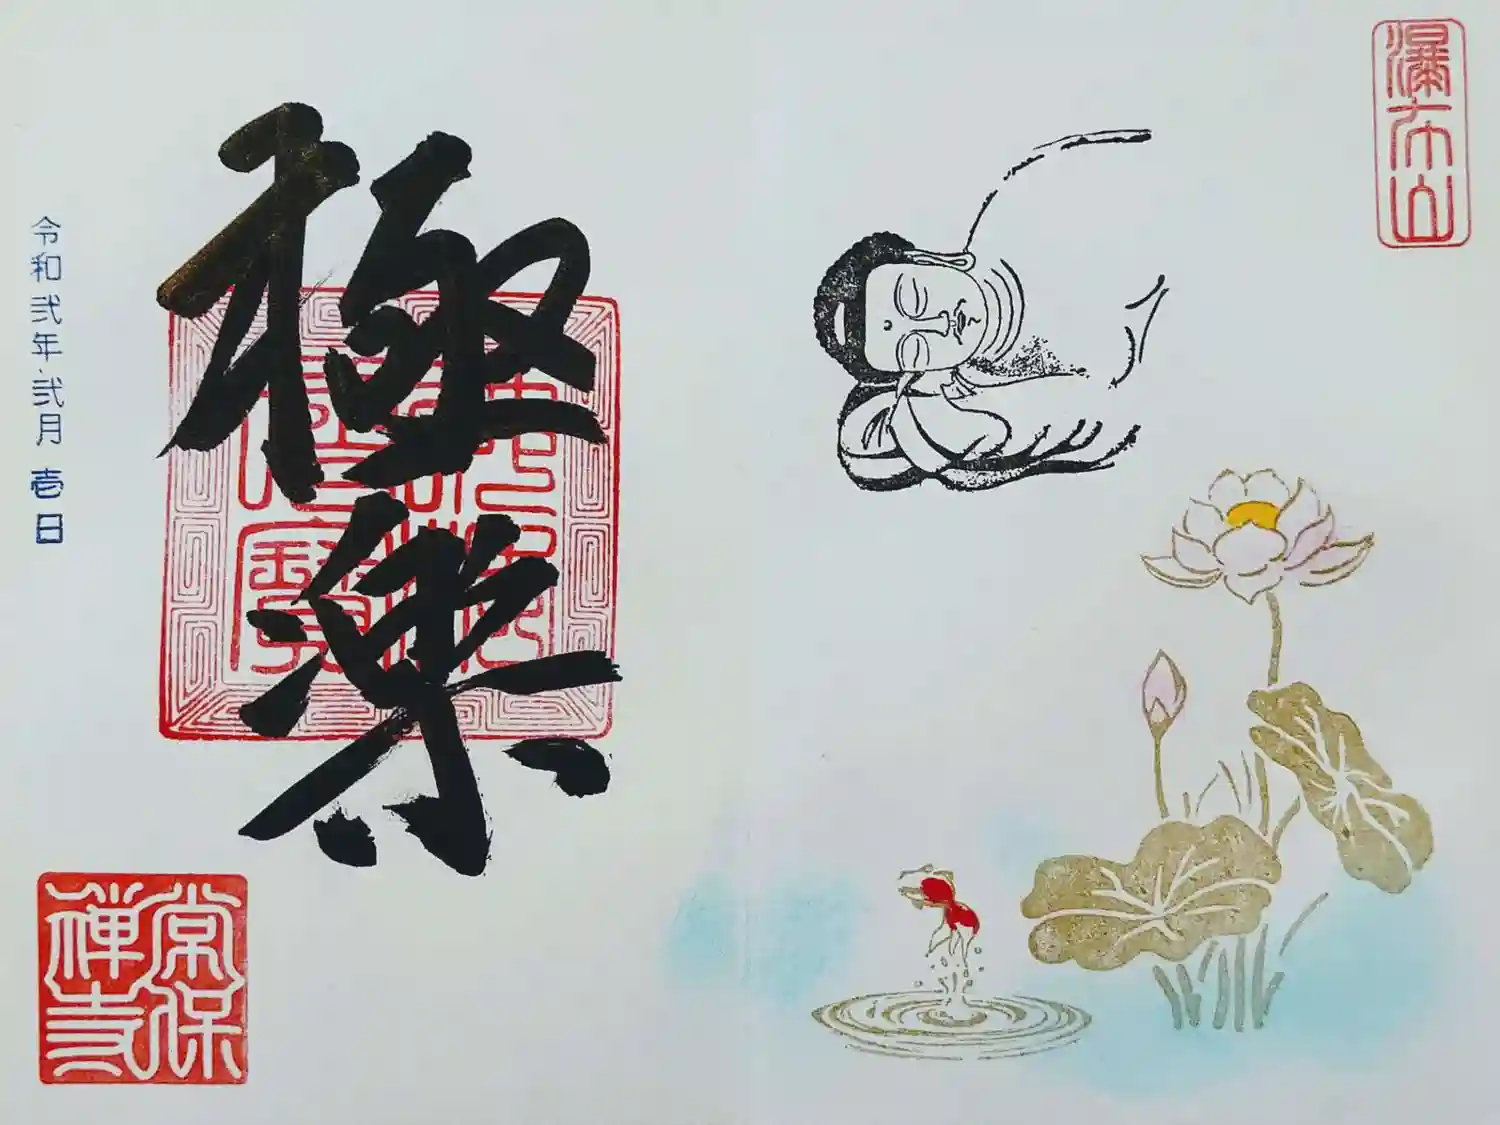 瀑布山
極楽
令和弐年.弐月壱日
常保
禅寺